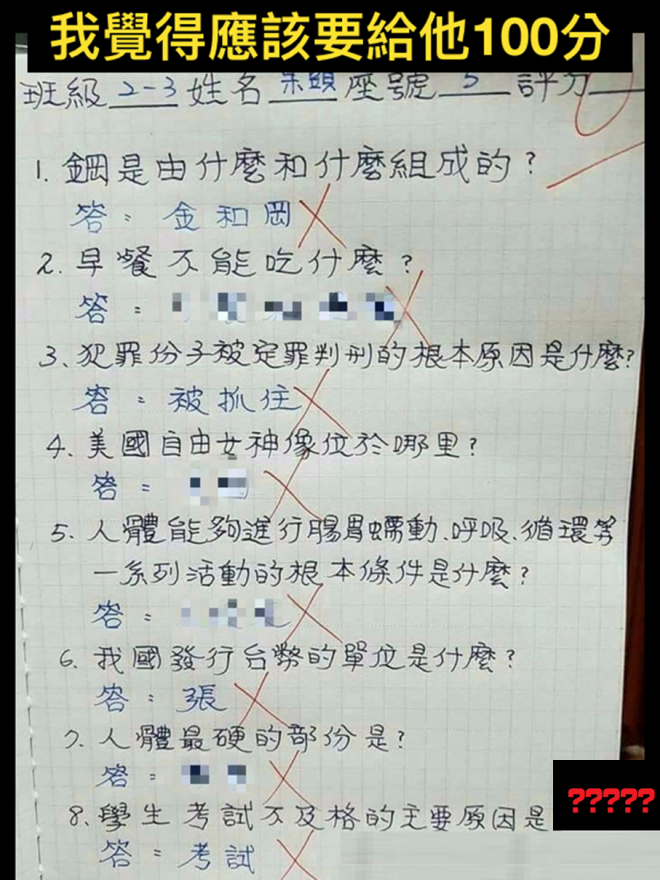 我覺得應該要給他100分
班級 2-3 姓名 朱頭 座號 5 評分
1. 鋼是由什麼和什麼組成的?
答: 金和岡
2. 早餐不能吃什麼?
答:
3、犯罪份子被定罪判刑的根本原因是什麼?
答: 被抓住
4、美國自由女神像位於哪里?
答:
5、人體能夠進行腸胃蠕動、呼吸、循環等
一系列活動的根本條件是什麼?
答:
6、我國發行台幣的單位是什麼?
答: 張
7、人體最硬的部份是?
答:
8、學生考試不及格的主要原因是
?????
答: 考試